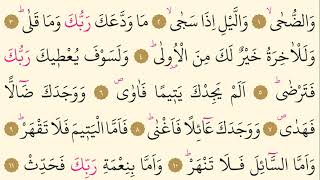 وَالضُّحٰىۙ ١ وَالَّيْلِ اِذَا سَجٰىۙ ٢ مَا وَدَّعَكَ رَبُّكَ وَمَا قَلٰىؕ ٣
وَلَلْاٰخِرَةُ خَيْرٌ لَّكَ مِنَ الْاُوْلٰىؕ ٤ وَلَسَوْفَ يُعْطِيْكَ رَبُّكَ
فَتَرْضٰىؕ ٥ اَلَمْ يَجِدْكَ يَتِيْمًا فَاٰوٰىࣕ ٦ وَوَجَدَكَ ضَآلًّا
فَهَدٰىࣕ ٧ وَوَجَدَكَ عَآئِلًا فَاَغْنٰىؕ ٨ فَاَمَّا الْيَتِيْمَ فَلَا تَقْهَرْؕ ٩
وَاَمَّا السَّآئِلَ فَلَا تَنْهَرْؕ ١٠ وَاَمَّا بِنِعْمَةِ رَبِّكَ فَحَدِّثْ ١١